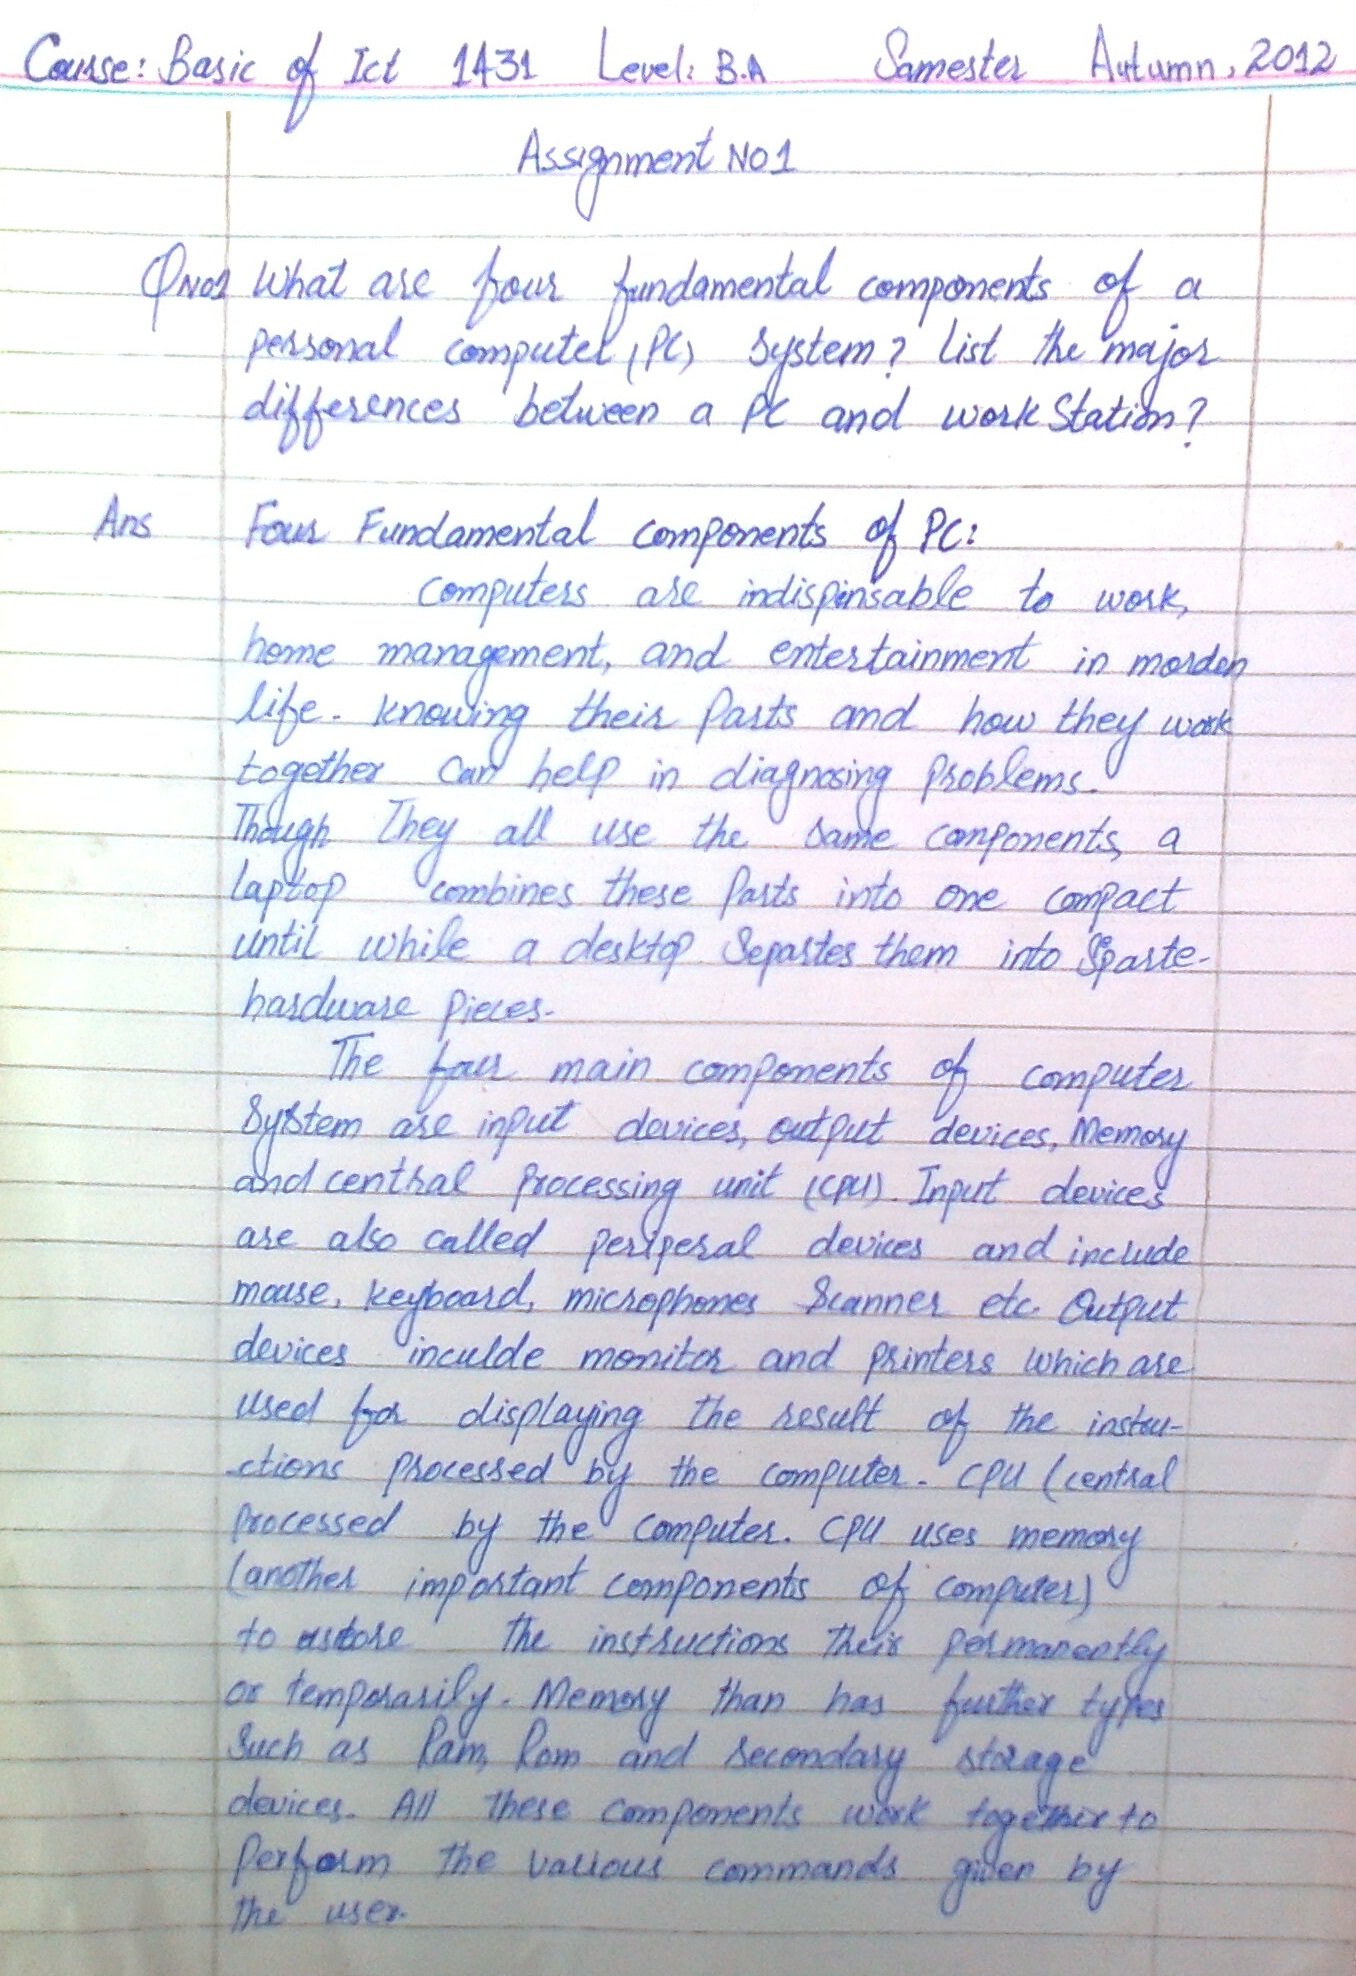 Course: Basic of Ict 1431 Level: B.A Samester Autumn, 2012
Assignment NO1
QNO1 What are four fundamental components of a
personal computer (PC) system? List the major
differences between a PC and work Station?
Ans Four Fundamental components of PC:
computers are indispinsable to work,
home management, and entertainment in morden
life. knowing their Parts and how they work
together can help in diagnosing problems.
Though They all use the same components, a
laptop combines these Parts into one compact
until while a desktop Separtes them into Sparte-
hardware pieces.
The four main components of computer
System are input devices, output devices, Memory
and central processing unit (CPU). Input devices
are also called periperal devices and include
mouse, keyboard, microphones Scanner etc. Output
devices inculde monitor and printers which are
used for displaying the result of the instru-
-ctions processed by the computer. CPU (central
processed by the computer. CPU uses memory
(another important components of computer)
to the instructions their permanently
or temporarily. Memory than has further types
Such as Ram, Rom and secondary storage
devices. All these components work together to
Perform the various commands given by
the user.